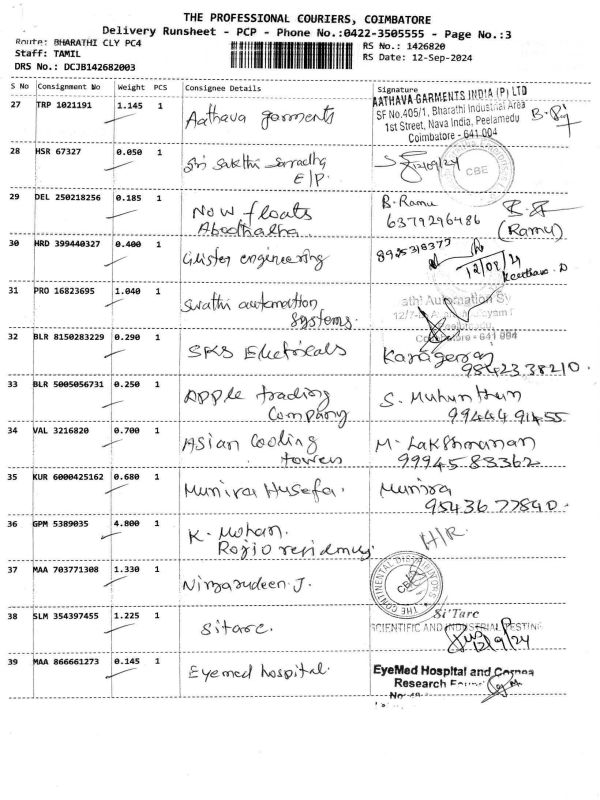 THE PROFESSIONAL COURIERS, COIMBATORE
Delivery Runsheet - PCP - Phone No.:0422-3505555 - Page No.:3
Route: BHARATHI CLY PC4
Staff: TAMIL
DRS No.: DCJB142682003
RS No.: 1426820
RS Date: 12-Sep-2024
S No Consignment No Weight PCS Consignee Details Signature
27 TRP 1021191 1.145 1 Aathava garments
AATHAVA GARMENTS INDIA (P) LTD
SF No.405/1, Bharathi Industrial Area
1st Street, Nava India, Peelamedu
Coimbatore - 641 004
28 HSR 67327 0.050 1 Sri Sakthi
E/P.
12/09/24
CBE
29 DEL 250218256 0.185 1 Now floats
B. Ramu
6379296486
(Ramu)
30 HRD 399440327 0.400 1 Glister engineering
8925318377
12/09/24
Keerthana. D
31 PRO 16823695 1.040 1 Swathi automation
Systems.
athi Automation Sy
12/7-
Coimbatore - 641 004
32 BLR 8150283229 0.290 1 SKS Electricals
9842338210.
33 BLR 5005056731 0.250 1 Apple trading
Company
S. Muhunthan
9944491455
34 VAL 3216820 0.700 1 Asian Cooling
towers
M. Lakshmanan
9994583362
35 KUR 6000425162 0.680 1 Munira Husefa.
Munira
9543677840.
36 GPM 5389035 4.800 1 K. Mohan.
H/R.
37 MAA 703771308 1.330 1 Nizarudeen. J.
THE CONTINENTAL DISTRIBUTORS
CBE
38 SLM 354397455 1.225 1 Sitarc.
Si'Tarc
SCIENTIFIC AND INDUSTRIAL TESTING
12/9/24
39 MAA 866661273 0.145 1 Eyemed hospital.
EyeMed Hospital and Cornea
Research